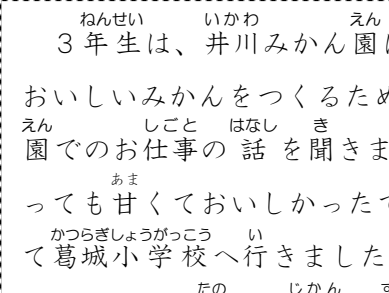 ねんせい いかわ えん
3年生は、井川みかん園
おいしいみかんをつくるため
えん しごと はなし き
園でのお仕事の話を聞きま
あま
っても甘くておいしかった
かつらぎしょうがっこう い
て葛城小学校へ行きました
たの じかん